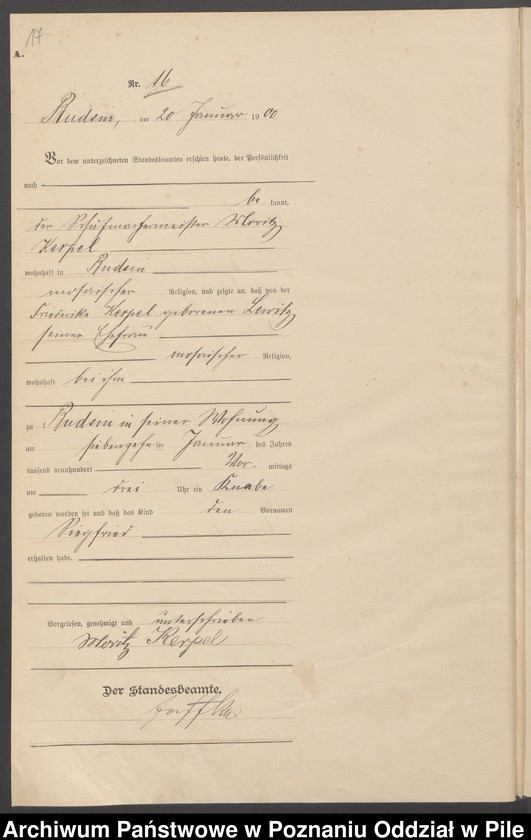 17
A.
Nr. 16
Budsin, am 20 Januar 1900
Vor dem unterzeichneten Standesbeamten erschien heute, der Persönlichkeit
nach
be kannt,
der Schuhmachermeister Moritz
Kespel
wohnhaft in Budsin
mosaischer Religion, und zeigte an, daß von der
Friederike Kespel geborenen Lewitz
seiner Ehefrau
mosaischer Religion,
wohnhaft bei ihm
zu Budsin in seiner Wohnung
am siebenzehnten Januar des Jahres
tausend neunhundert Vor mittags
um drei Uhr ein Knabe
geboren worden sei und daß das Kind den Vornamen
Siegfried
erhalten habe.
Vorgelesen, genehmigt und unterschrieben
Moritz Kespel
Der Standesbeamte.
Archiwum Państwowe w Poznaniu Oddział w Pile